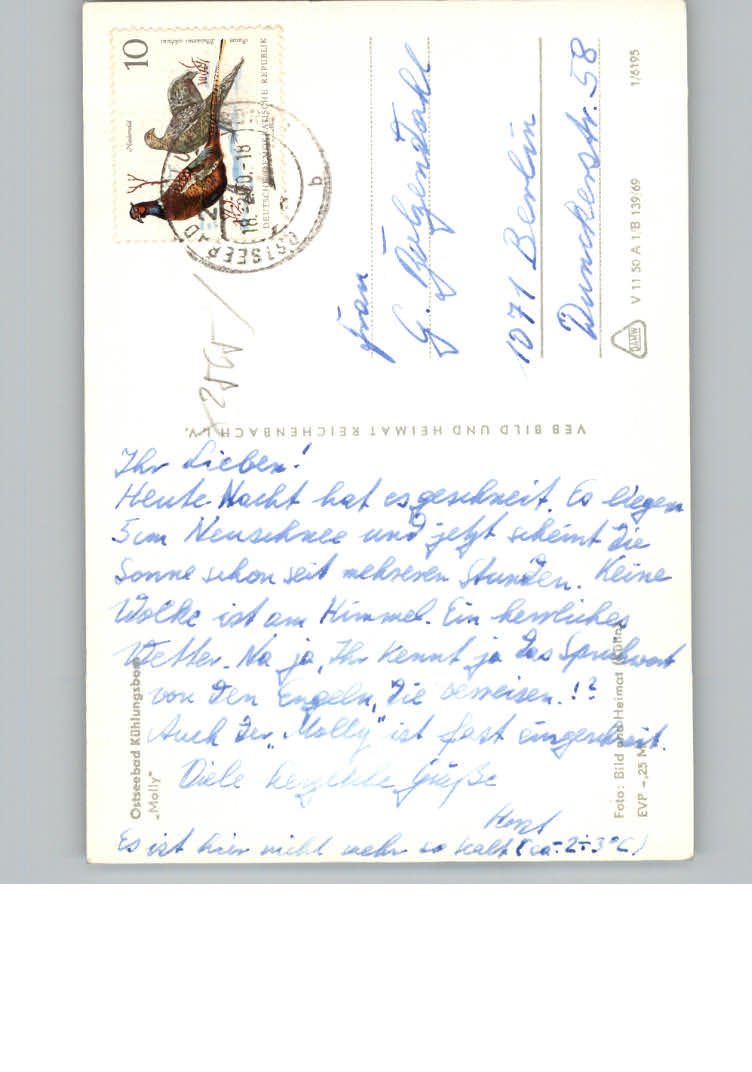 10
Niederwild
DEUTSCHE DEMOKRATISCHE REPUBLIK
OSTSEEBAD
b
Frau
G. Bölgendahl
1071 Berlin
Dunckerstr. 58
V 11 50 A 1/B 139/69
1/6195
DAMW
VEB BILD UND HEIMAT REICHENBACH I.V.
Ihr Lieben!
Heute Nacht hat es geschneit. Es liegen
5 cm Neuschnee und jetzt scheint die
Sonne schon seit mehreren Stunden. Keine
Wolke ist am Himmel. Ein herrliches
Wetter. Na ja, Ihr kennt ja das Sprichwort
von den Engeln, die verreisen.!?
Auch der „Molly" ist fast eingeschneit.
Viele herzliche Grüße
Horst
Es ist hier nicht mehr so kalt (ca -2÷3°C)
Ostseebad Kühlungsborn
„Molly"
Foto: Bild und Heimat
EVP -,25 M